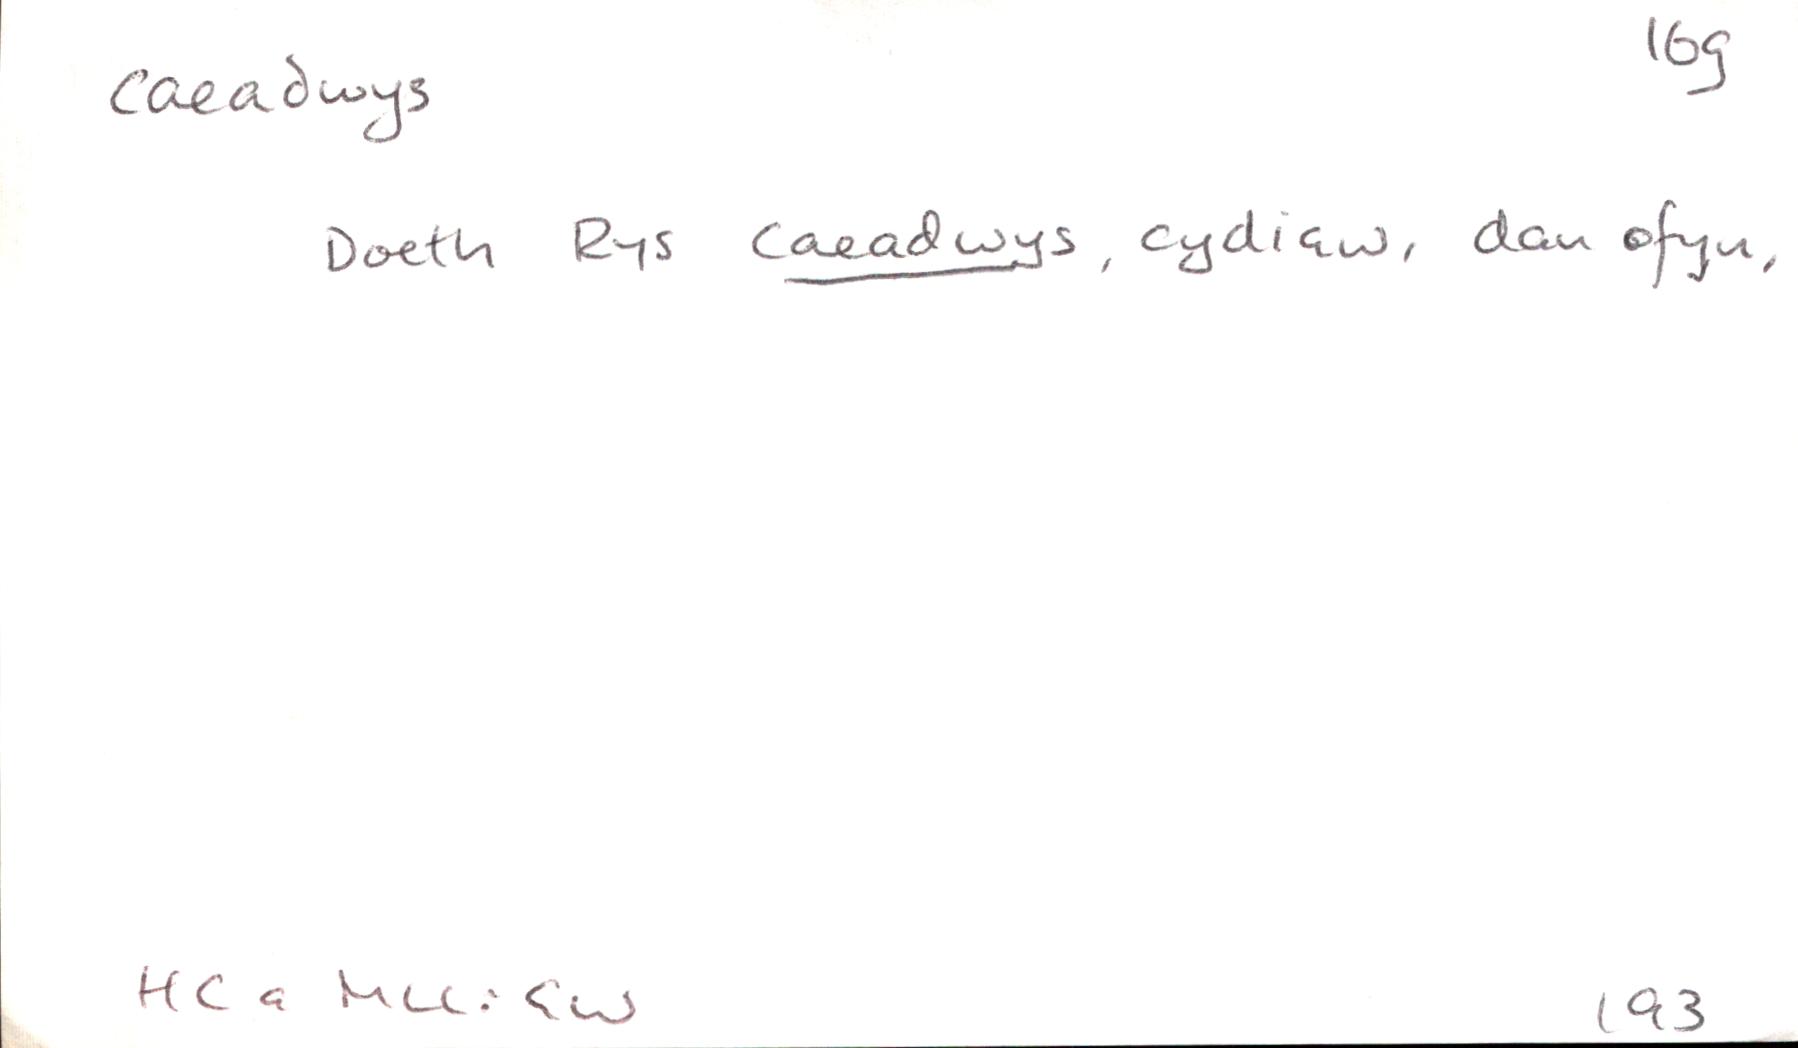 caeadwys
16g
Doeth Rys caeadwys, cydiaw, dan ofyn,
HC a MLl: Gw
193